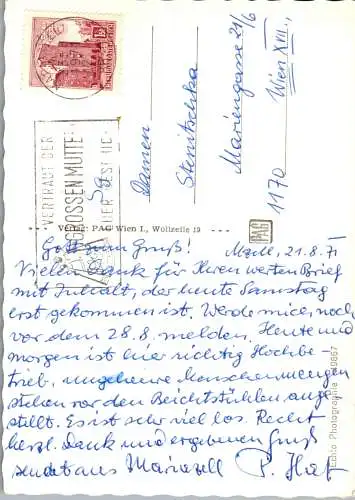 VERTRAUT DER
GROSSEN MUTTER
Damen
Stenitschka
Mariengasse 21/6
Wien XVII.,
1170
Verlag: PAG Wien I., Wollzeile 19
PAG
Gott zum Gruß! Mzell, 21.8.71
Vielen Dank für Ihren werten Brief
mit Inhalt, der heute Samstag
erst gekommen ist. Werde mich noch
vor dem 28.8. melden. Heute und
morgen ist hier richtig Hochbe-
trieb, ungeheure Menschenmengen
stehen vor den Beichtstühlen ange-
stellt. Es ist sehr viel los. Recht
herzl. Dank und ergebenen Gruß
sendet aus Mariazell P.